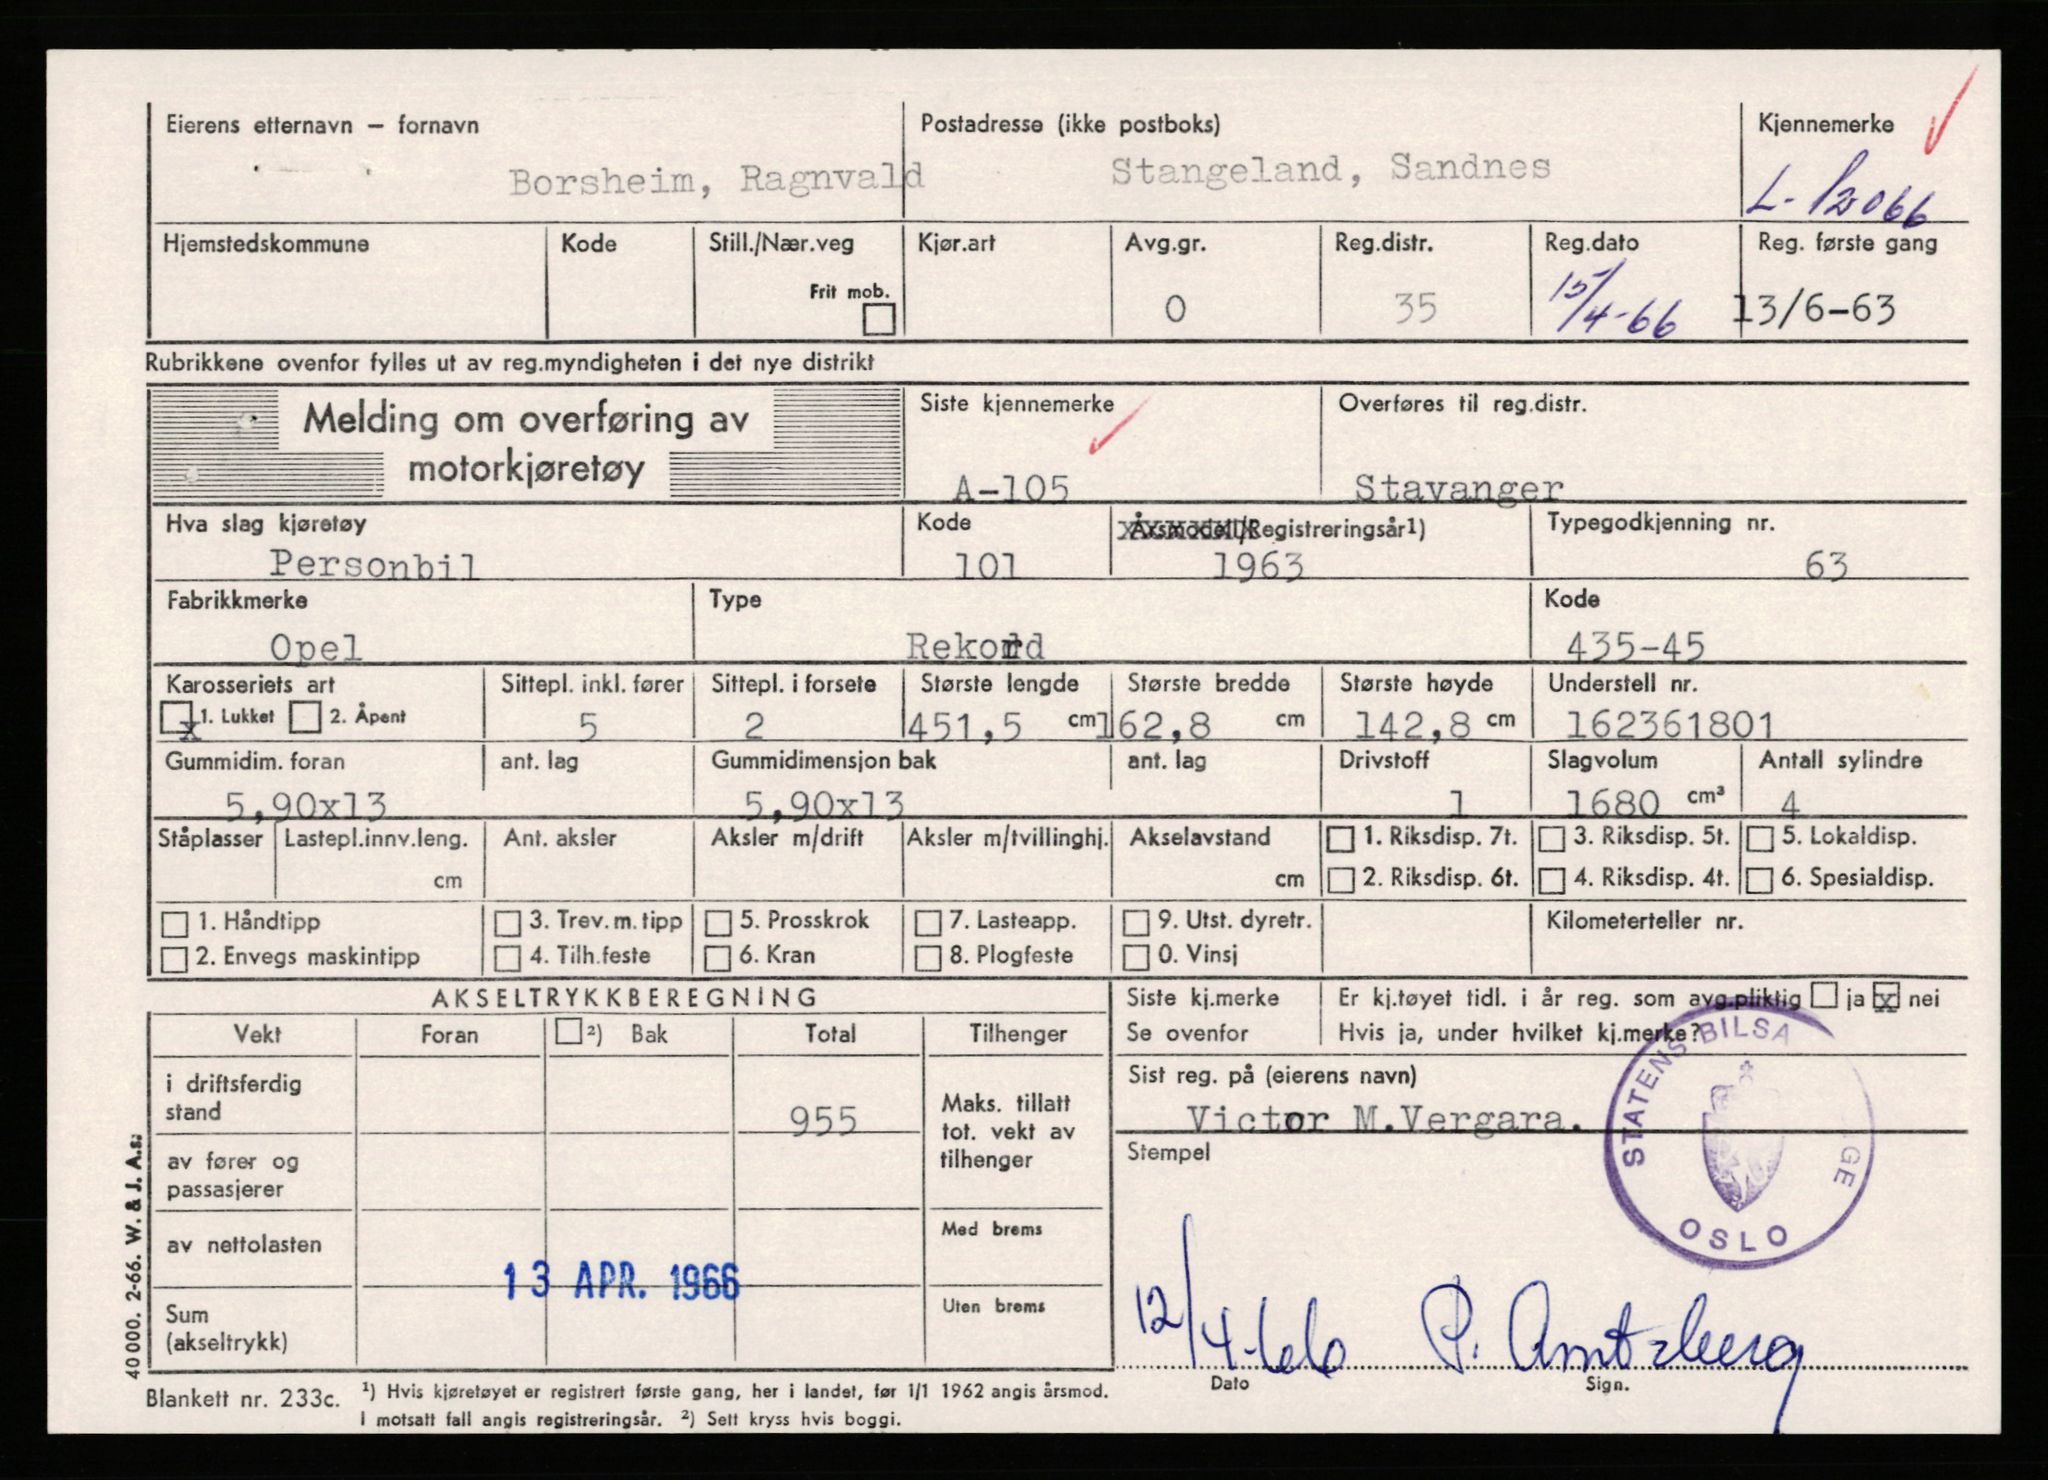 Eierens etternavn – fornavn Postadresse (ikke postboks) Kjennemerke
Borsheim, Ragnvald Stangeland, Sandnes L-12066
Hjemstedskommune Kode Still./Nær.veg Kjør.art Avg.gr. Reg.distr. Reg.dato Reg. første gang
Frit mob. 0 35 15/4-66 13/6-63
Rubrikkene ovenfor fylles ut av reg.myndigheten i det nye distrikt
Melding om overføring av Siste kjennemerke Overføres til reg.distr.
motorkjøretøy A-105 Stavanger
Hva slag kjøretøy Kode Årsmodell/Registreringsår1) Typegodkjenning nr.
Personbil 101 1963 63
Fabrikkmerke Type Kode
Opel Rekord 435-45
Karosseriets art Sittepl. inkl. fører Sittepl. i forsete Største lengde Største bredde Største høyde Understell nr.
x 1. Lukket 2. Åpent 5 2 451,5 cm 162,8 cm 142,8 cm 162361801
Gummidim. foran ant. lag Gummidimensjon bak ant. lag Drivstoff Slagvolum Antall sylindre
5,90x13 5,90x13 1 1680 cm³ 4
Ståplasser Lastepl.innv.leng. Ant. aksler Aksler m/drift Aksler m/tvillinghj. Akselavstand 1. Riksdisp. 7t. 3. Riksdisp. 5t. 5. Lokaldisp.
cm cm 2. Riksdisp. 6t. 4. Riksdisp. 4t. 6. Spesialdisp.
1. Håndtipp 3. Trev. m. tipp 5. Prosskrok 7. Lasteapp. 9. Utst. dyretr. Kilometerteller nr.
2. Envegs maskintipp 4. Tilh.feste 6. Kran 8. Plogfeste 0. Vinsj
AKSELTRYKKBEREGNING Siste kj.merke Er kj.tøyet tidl. i år reg. som avg.pliktig ja x nei
Vekt Foran ²) Bak Total Tilhenger Se ovenfor Hvis ja, under hvilket kj.merke?
i driftsferdig Sist reg. på (eierens navn)
stand 955 Maks. tillatt Victor M.Vergara.
av fører og tot. vekt av Stempel
passasjerer tilhenger
STATENS BILSA GE OSLO
av nettolasten Med brems
13 APR. 1966
Sum Uten brems
(akseltrykk) 12/4-66 P. Amtzberg
Dato Sign.
40 000. 2-66. W. & J. A.s.
Blankett nr. 233c. ¹) Hvis kjøretøyet er registrert første gang, her i landet, før 1/1 1962 angis årsmod.
I motsatt fall angis registreringsår. ²) Sett kryss hvis boggi.